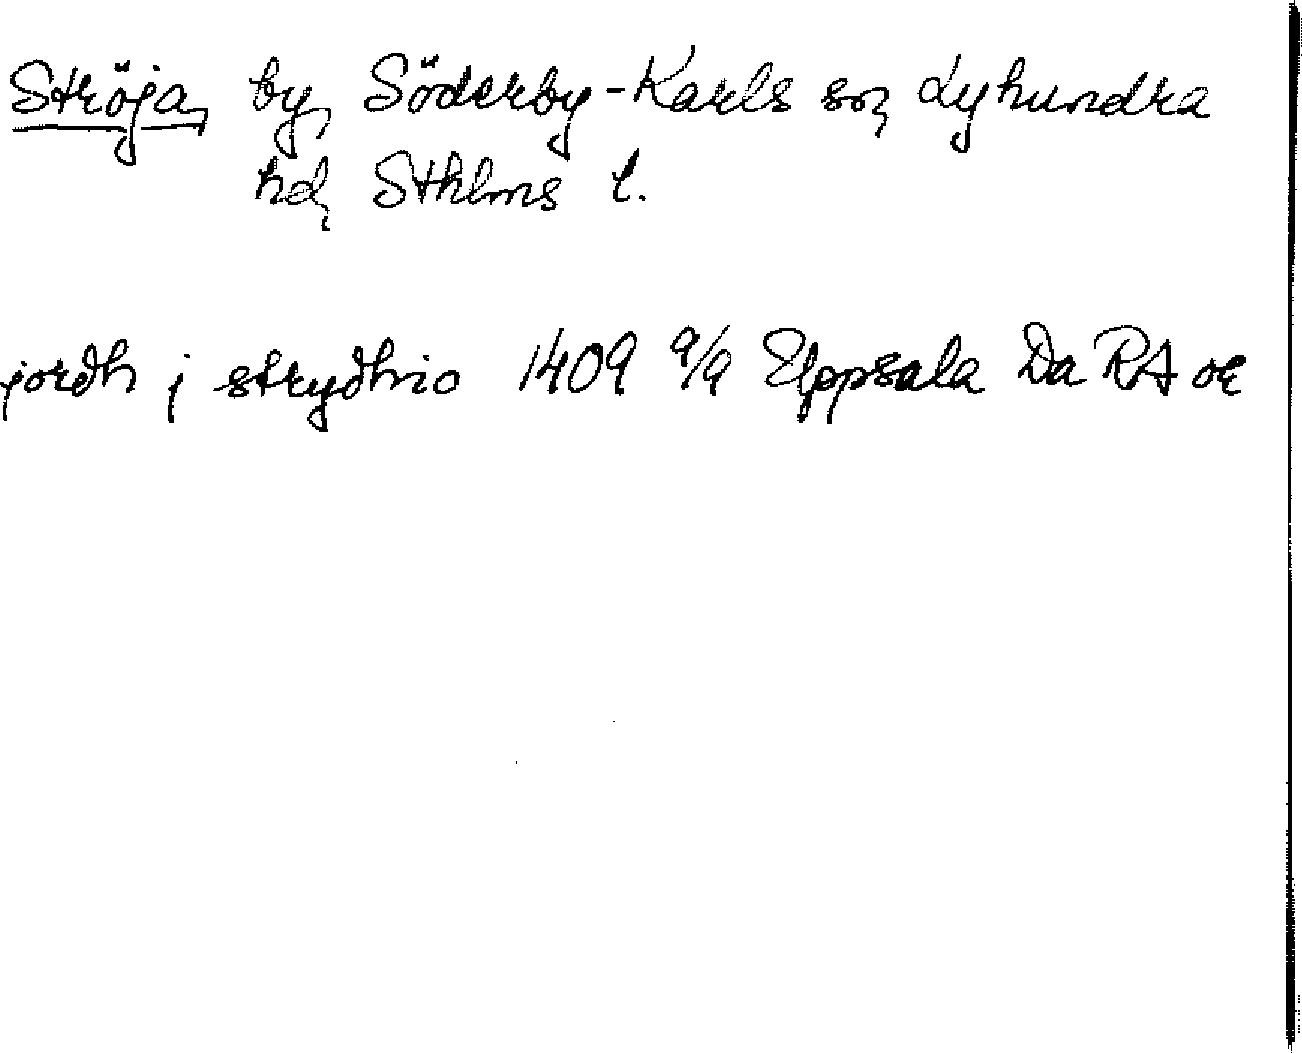 Ströja, by, Söderby-Karls sn, Lyhundra
hd, Sthlms l.
jordh j strydhio 1409 9/9 Uppsala Da RA or